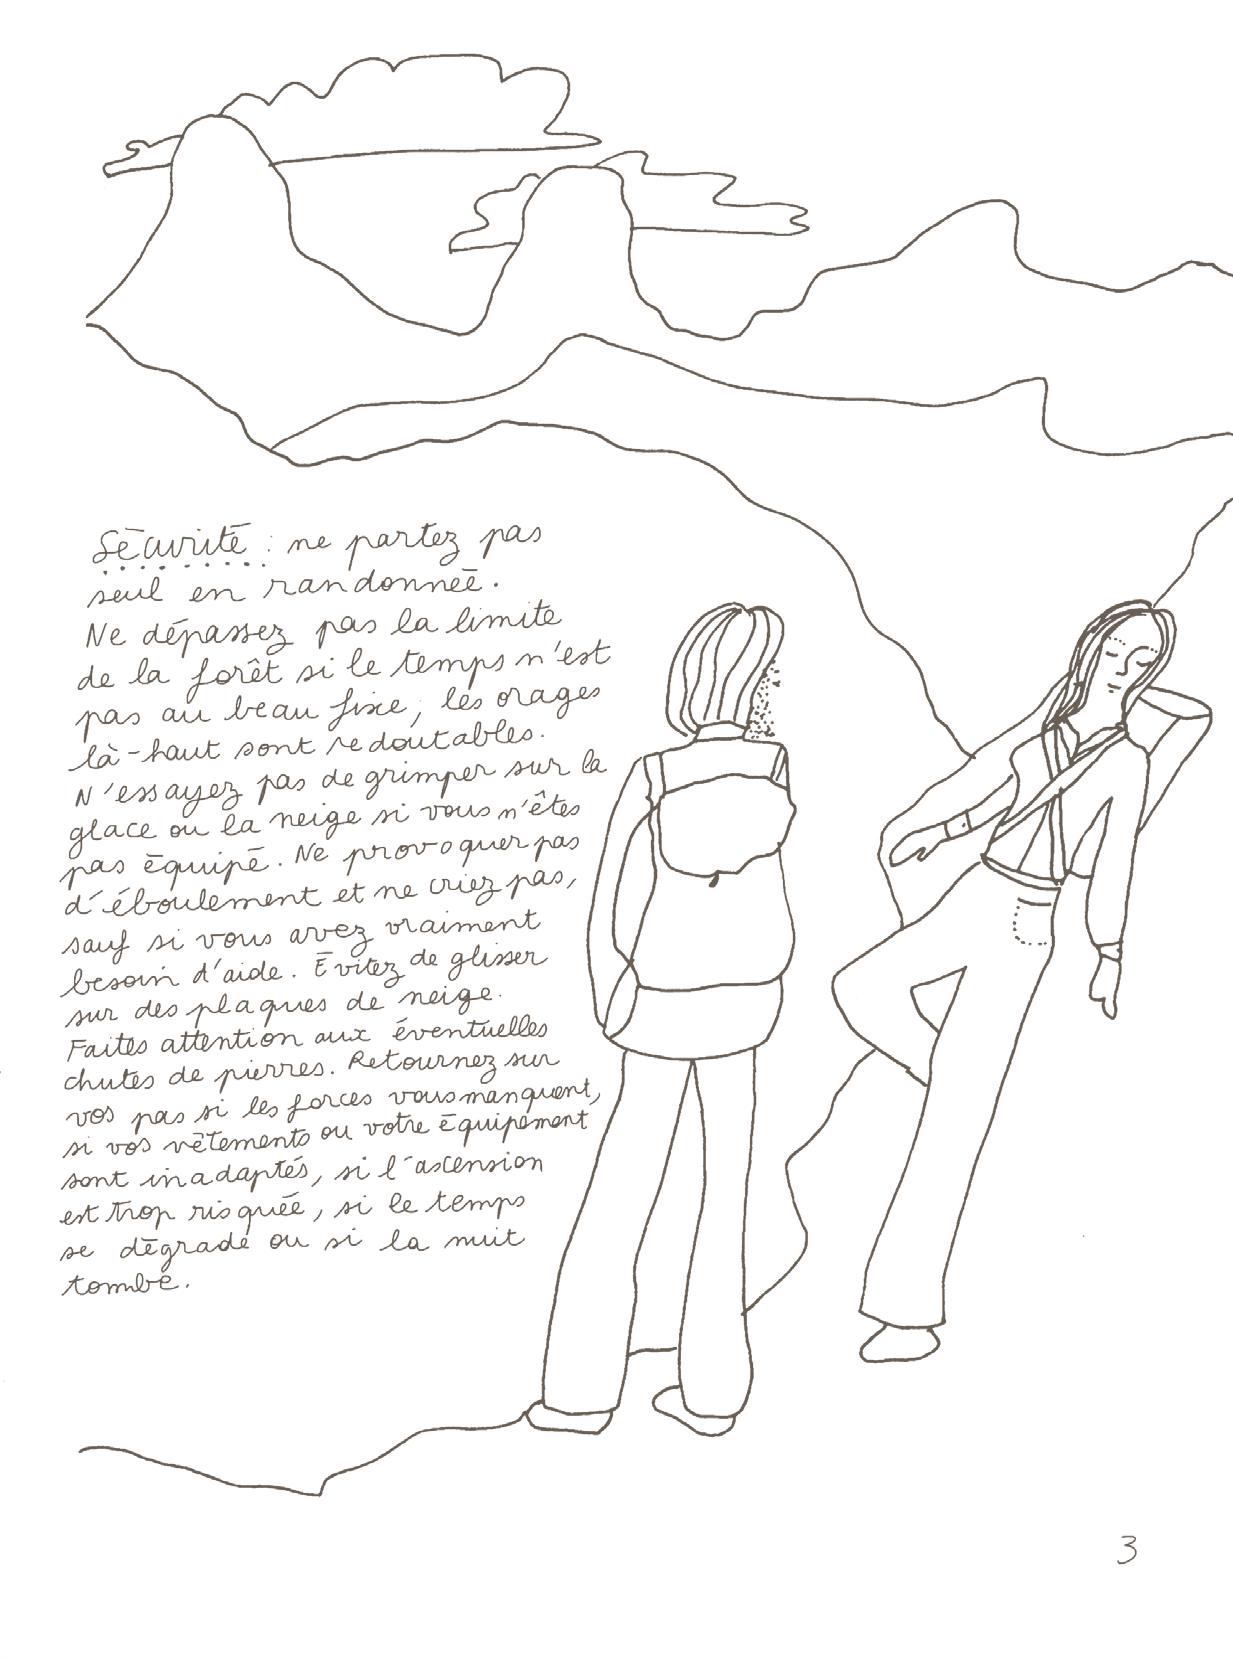 Sécurité : ne partez pas
seul en randonnée.
Ne dépassez pas la limite
de la forêt si le temps n'est
pas au beau fixe, les orages
là-haut sont redoutables.
N'essayez pas de grimper sur la
glace ou la neige si vous n'êtes
pas équipé. Ne provoquer pas
d'éboulement et ne criez pas,
sauf si vous avez vraiment
besoin d'aide. Évitez de glisser
sur des plaques de neige.
Faites attention aux éventuelles
chutes de pierres. Retournez sur
vos pas si les forces vous manquent,
si vos vêtements ou votre équipement
sont inadaptés, si l'ascension
est trop risquée, si le temps
se dégrade ou si la nuit
tombe.
3